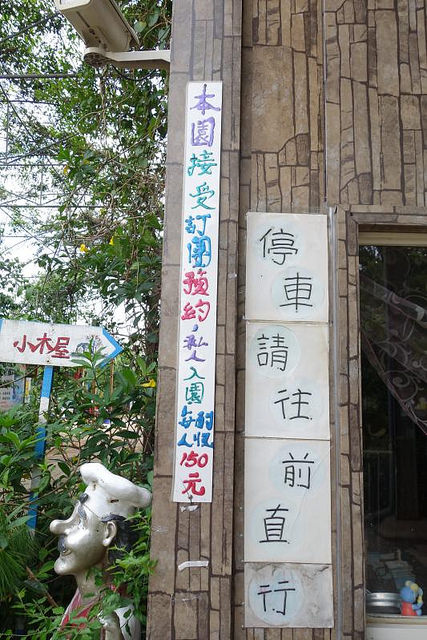 本園接受訂團預約，私人入園酌收每人150元
停車請往前直行
小木屋